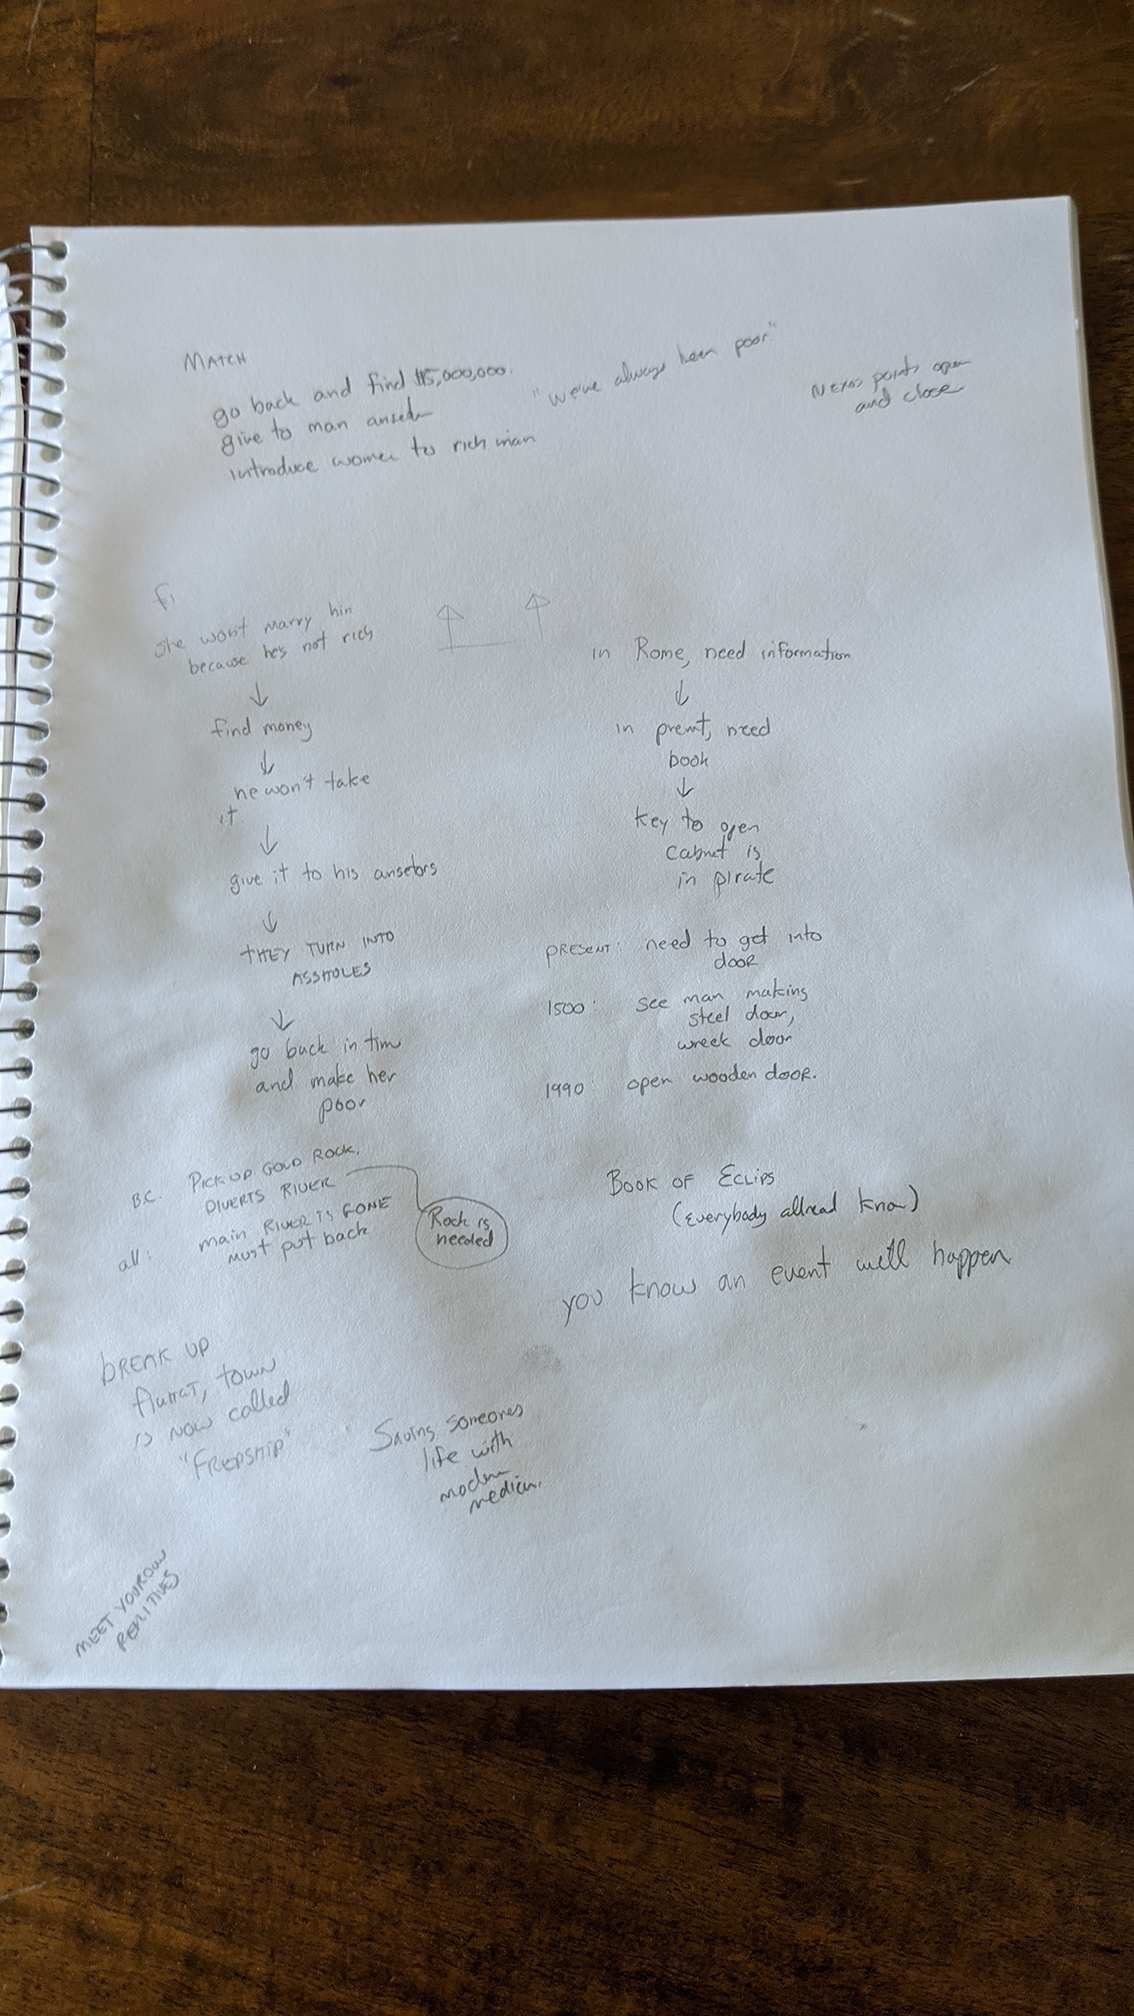 MATCH
go back and find $5,000,000.
give to man anseder
introduce women to rich man
"we've always been poor"
Nexos points open
and close
fi
she won't marry him
because he's not rich
↓
find money
↓
he won't take
it
↓
give it to his ansetors
↓
THEY TURN INTO
ASSHOLES
↓
go back in tim
and make her
poor
in Rome, need information
↓
in premt, need
book
↓
key to open
cabnet is
in pirate
PRESENT: need to get into
door
1500: see man making
steel door,
wreek door
1990: open wooden door.
B.C. PICK UP GOLD ROCK,
DIVERTS RIVER
all: main RIVER IS GONE
must put back
Rock is
needed
BOOK OF ECLIPS
(everybody allread know)
you know an event will happen
BREAK UP
town
is now called
"FRIEPSHIP"
Saving someones
life with
modern
medicin.
MEET YOUR OWN
RELITIVES